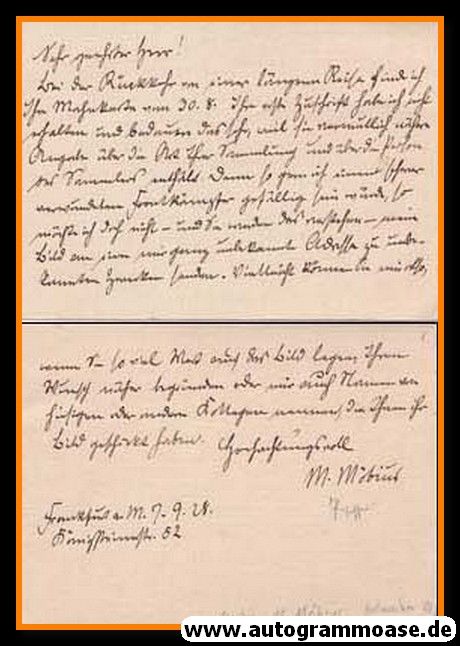 Sehr geehrter Herr!
Bei der Rückkehr von einer längeren Reise finde ich
Ihre Mahnkarte vom 30.8. Ihre erste Zuschrift habe ich nicht
erhalten und bedaure das sehr, weil sie vermutlich nähere
Angabe über die Art Ihrer Sammlung und über die Person
des Sammlers enthält. Denn so gern ich einem schwer
verwundeten Frontkämpfer gefällig sein würde, so
möchte ich doch nicht – und Sie werden das verstehen – mein
Bild an eine mir ganz unbekannte Adresse zu unbe-
kannten Zwecken senden. Vielleicht können Sie mir also,
wenn Sie so viel Wert auf das Bild legen, Ihren
Wunsch näher begründen oder mir auch Namen von
hiesigen oder andern Kollegen nennen, die Ihnen ihr
Bild geschickt haben. Hochachtungsvoll
M. Möbius
Frankfurt a. M. 7.9.28.
Königsteinerstr. 52
Möbius
www.autogrammoase.de